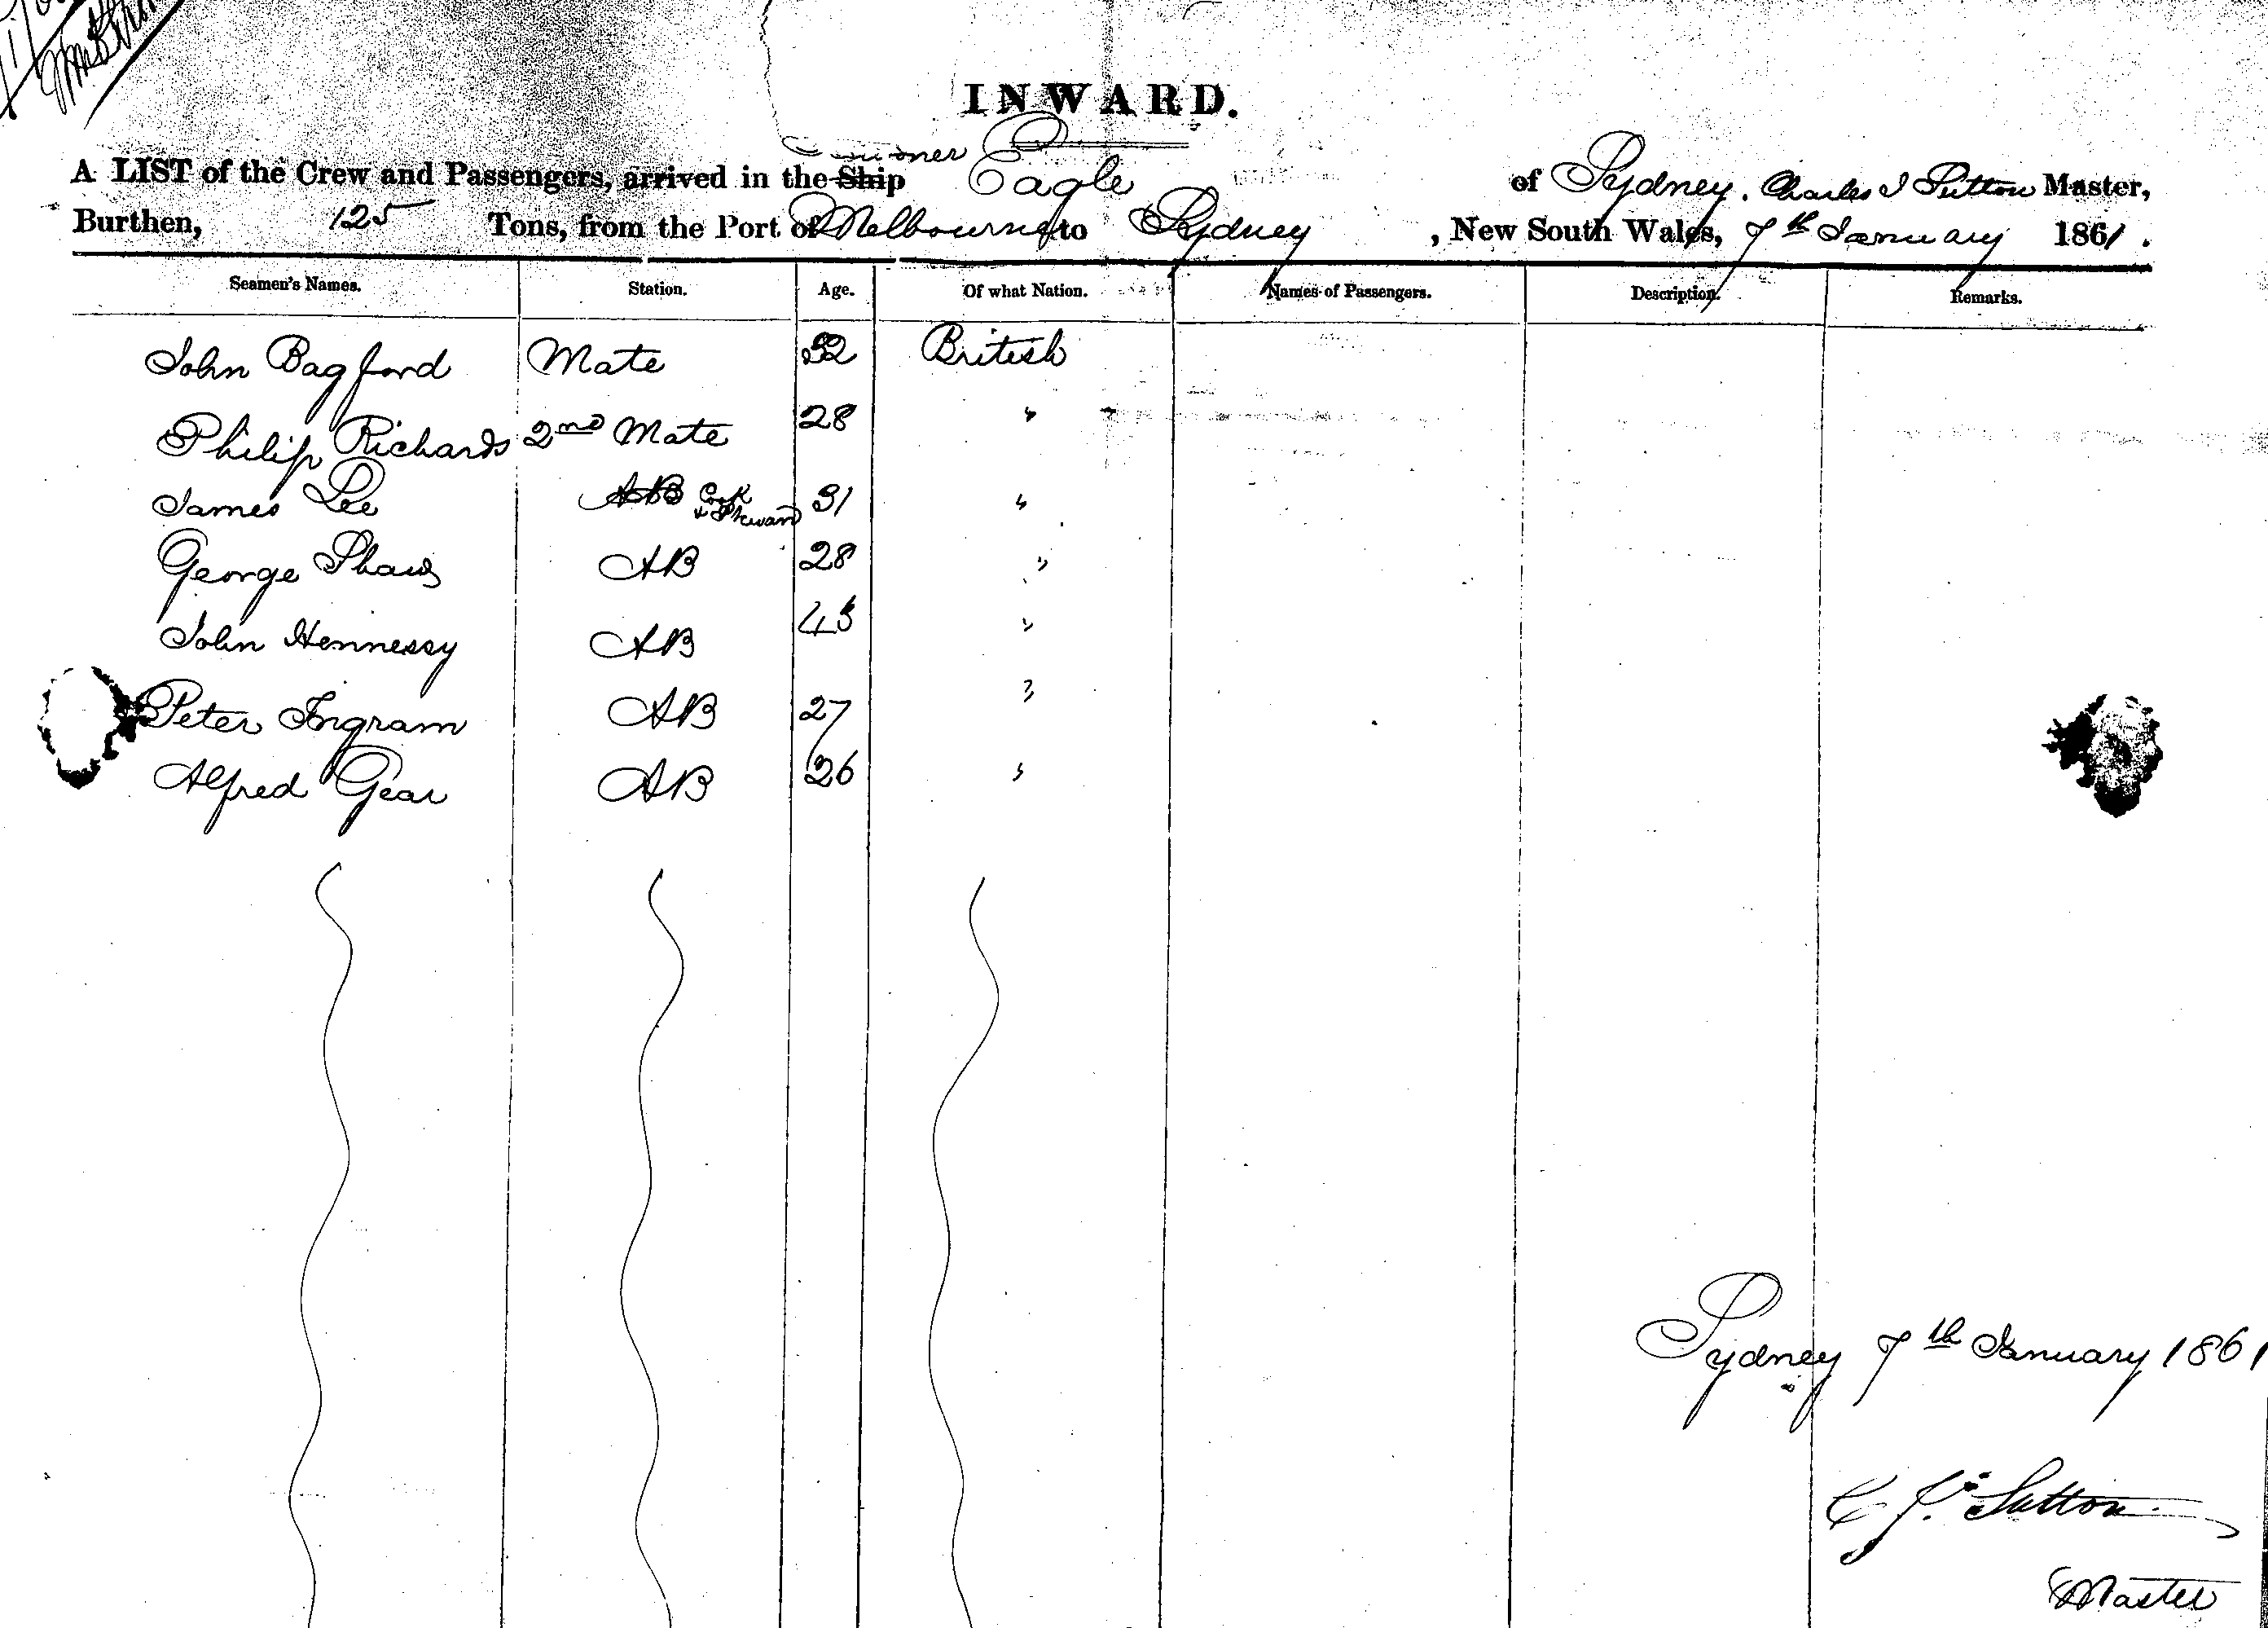 INWARD.
A LIST of the Crew and Passengers, arrived in the Ship Eagle of Sydney. Charles J Sutton Master,
Burthen, 125 Tons, from the Port of Melbourne to Sydney, New South Wales, 7th January 1861.
Seamen's Names. Station. Age. Of what Nation. Names of Passengers. Description. Remarks.
John Bagford Mate 32 British
Philip Richards 2nd Mate 28 "
James Lee AB Cook + Steward 31 "
George Shaw AB 28 "
John Hennessy AB 43 "
Peter Ingram AB 27 "
Alfred Gear AB 26 "
Sydney 7th January 1861
C J. Sutton
Master